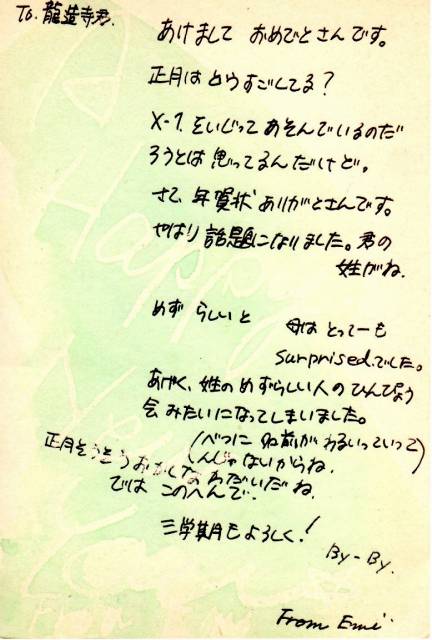 To. 龍造寺君.
あけまして おめでとさんです。
正月は どうすごしてる?
X-1. をいじって あそんでいるのだ
ろうとは 思ってるんだけど。
さて、年賀状 ありがとさんです。
やはり 話題になりました。君の
姓がね.
めず らしいと
母は とってーも
surprised. でした。
あげく、姓の めずらしい人の ひんぴょう
会 みたいになってしまいました。
(べつに 名前が わるいっていって
んじゃ ないからね.)
正月そうそう おかしな わだいだね.
では このへんで..
三学期も よろしく!
By-By.
From Emi